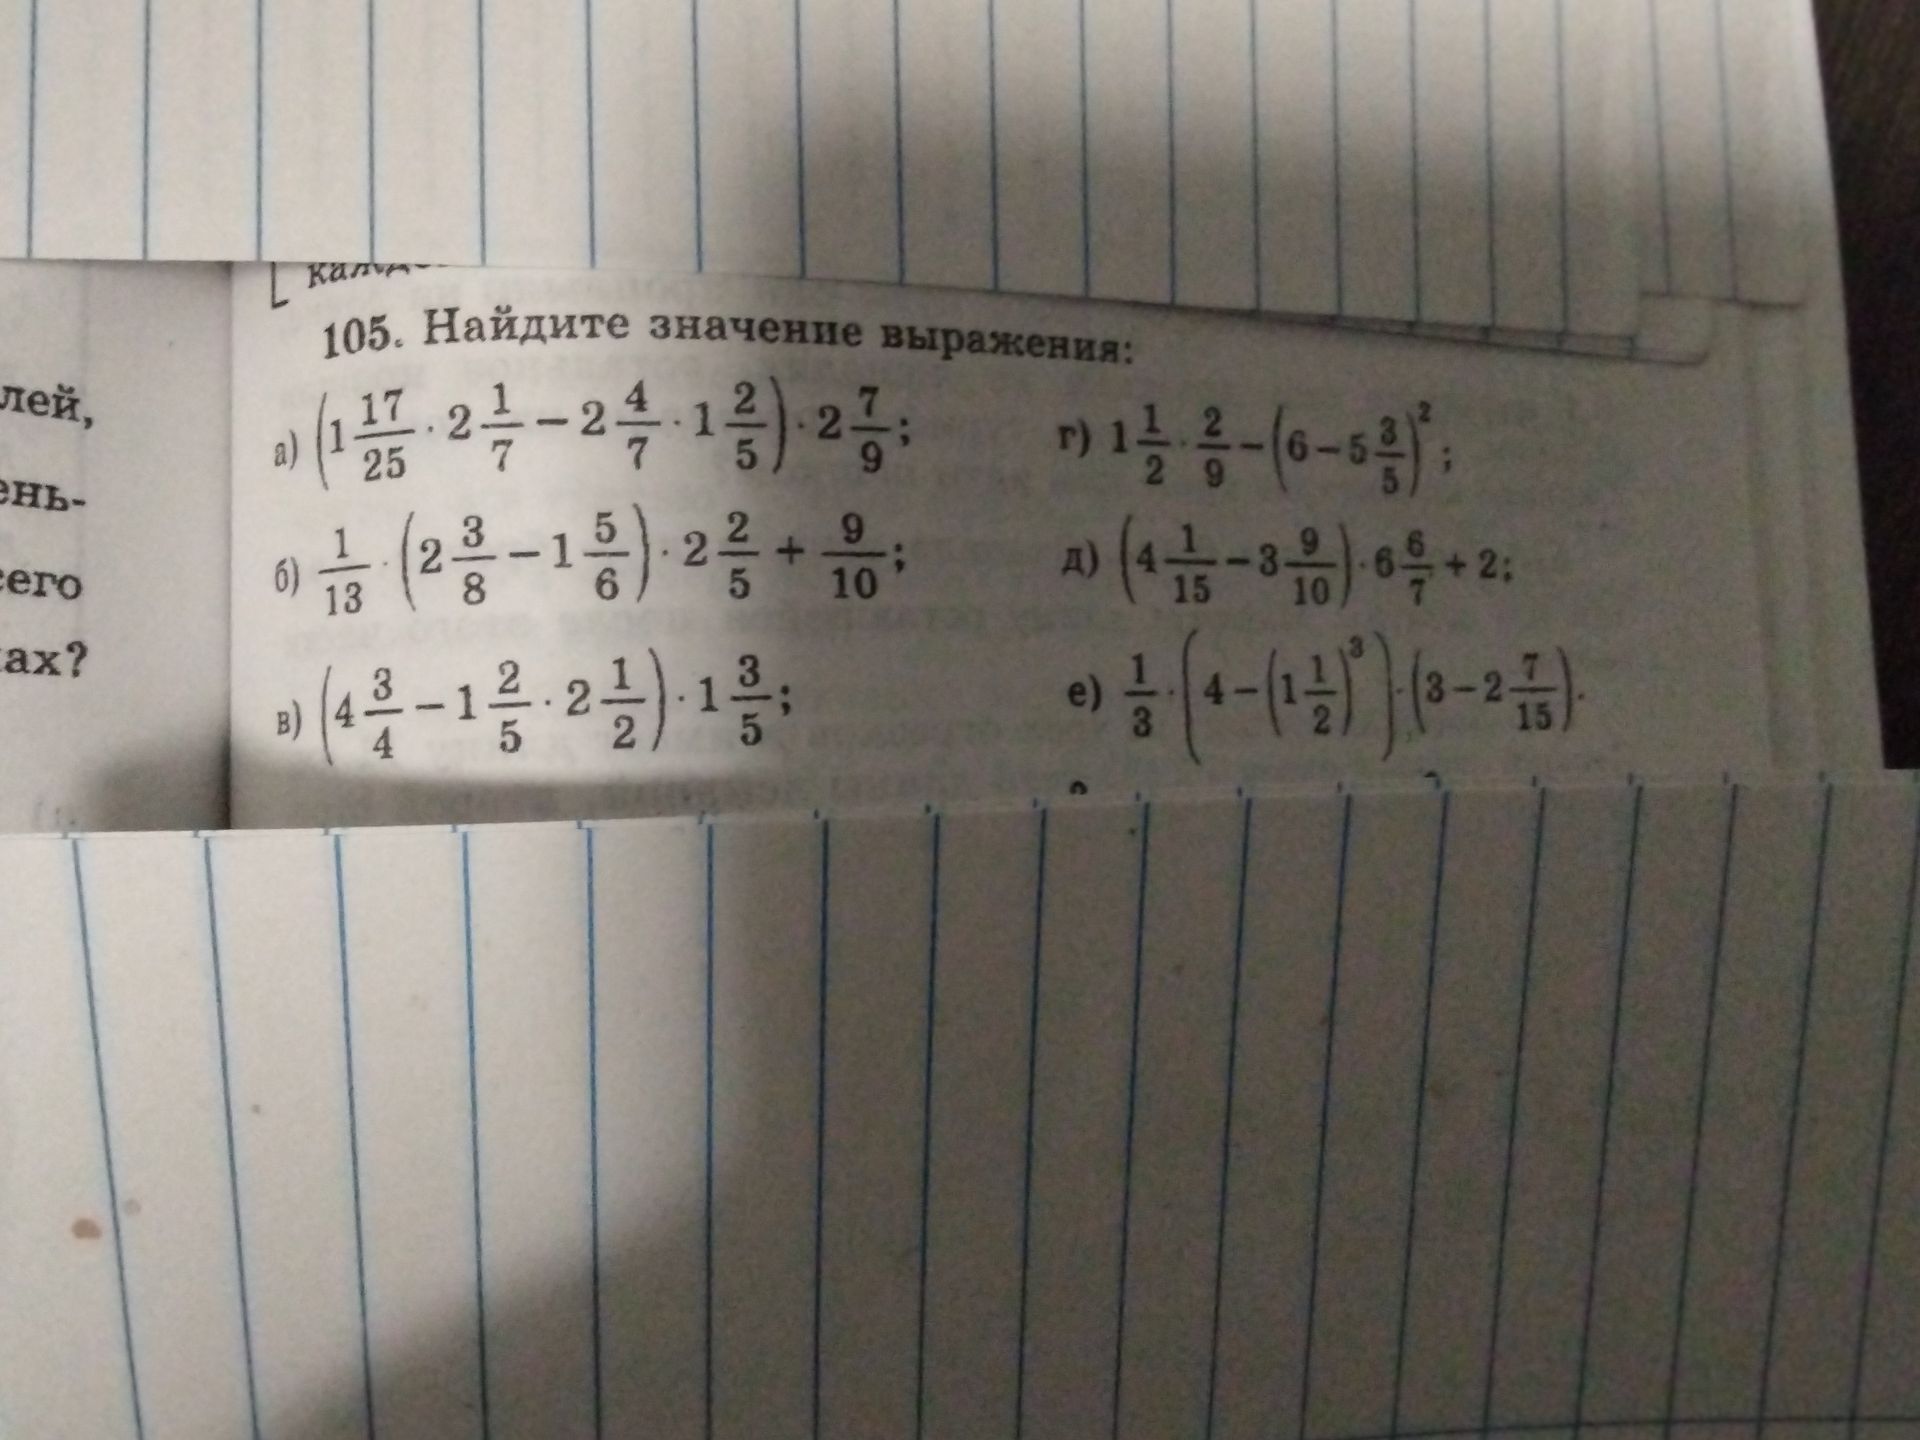 105. Найдите значение выражения:
а) (1 17/25 · 2 1/7 − 2 4/7 · 1 2/5) · 2 7/9;
б) 1/13 · (2 3/8 − 1 5/6) · 2 2/5 + 9/10;
в) (4 3/4 − 1 2/5 · 2 1/2) · 1 3/5;
г) 1 1/2 · 2/9 − (6 − 5 3/5)²;
д) (4 1/15 − 3 9/10) · 6 6/7 + 2;
е) 1/3 · (4 − (1 1/2)³) · (3 − 2 7/15).
лей,
ень-
сего
ах?